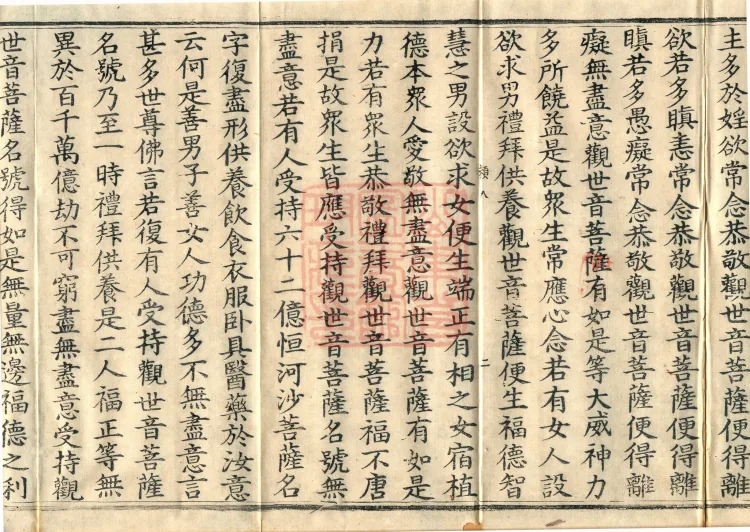 主多於婬欲常念恭敬觀世音菩薩便得離
欲若多瞋恚常念恭敬觀世音菩薩便得離
瞋若多愚癡常念恭敬觀世音菩薩便得離
癡無盡意觀世音菩薩有如是等大威神力
多所饒益是故眾生常應心念若有女人設
欲求男禮拜供養觀世音菩薩便生福德智
八 二
慧之男設欲求女便生端正有相之女宿植
德本眾人愛敬無盡意觀世音菩薩有如是
力若有眾生恭敬禮拜觀世音菩薩福不唐
捐是故眾生皆應受持觀世音菩薩名號無
盡意若有人受持六十二億恒河沙菩薩名
字復盡形供養飲食衣服卧具醫藥於汝意
云何是善男子善女人功德多不無盡意言
甚多世尊佛言若復有人受持觀世音菩薩
名號乃至一時禮拜供養是二人福正等無
異於百千萬億劫不可窮盡無盡意受持觀
世音菩薩名號得如是無量無邊福德之利